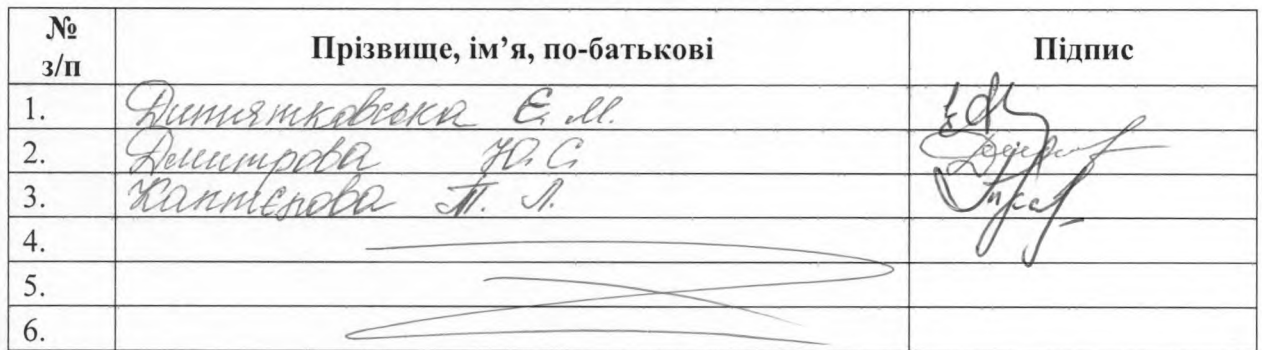 № з/п Прізвище, ім’я, по-батькові Підпис
1. Дитятковська Є. М.
2. Дмитрова Ю. С.
3. Каптєрова Т. Л.
4.
5.
6.